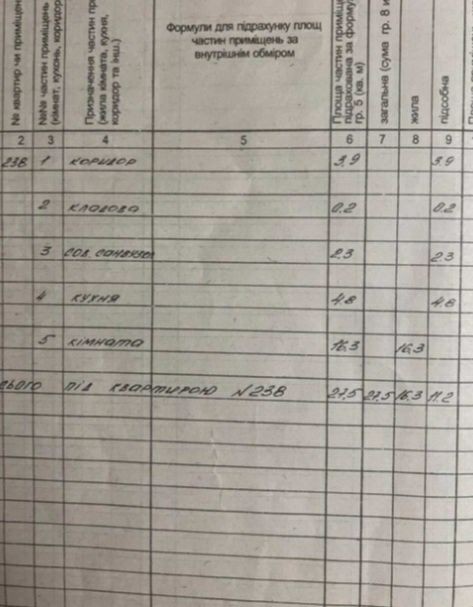 № квартир чи приміщень
№№ частин приміщень
(кімнат, кухонь, коридор
Призначення частин пр
(жила кімната, кухня,
коридор та інш.)
Формули для підрахунку площ
частин приміщень за
внутрішнім обміром
Площа частин приміщ
підрахована за форму
гр. 5 (кв. м)
загальна (сума гр. 8 и
жила
підсобна
2 3 4 5 6 7 8 9
238 1 коридор 3.9 3.9
2 кладова 0.2 0.2
3 сов. санвузол 2.3 2.3
4 кухня 4.8 4.8
5 кімната 16.3 16.3
сього під квартирою №238 27,5 27,5 16,3 11.2